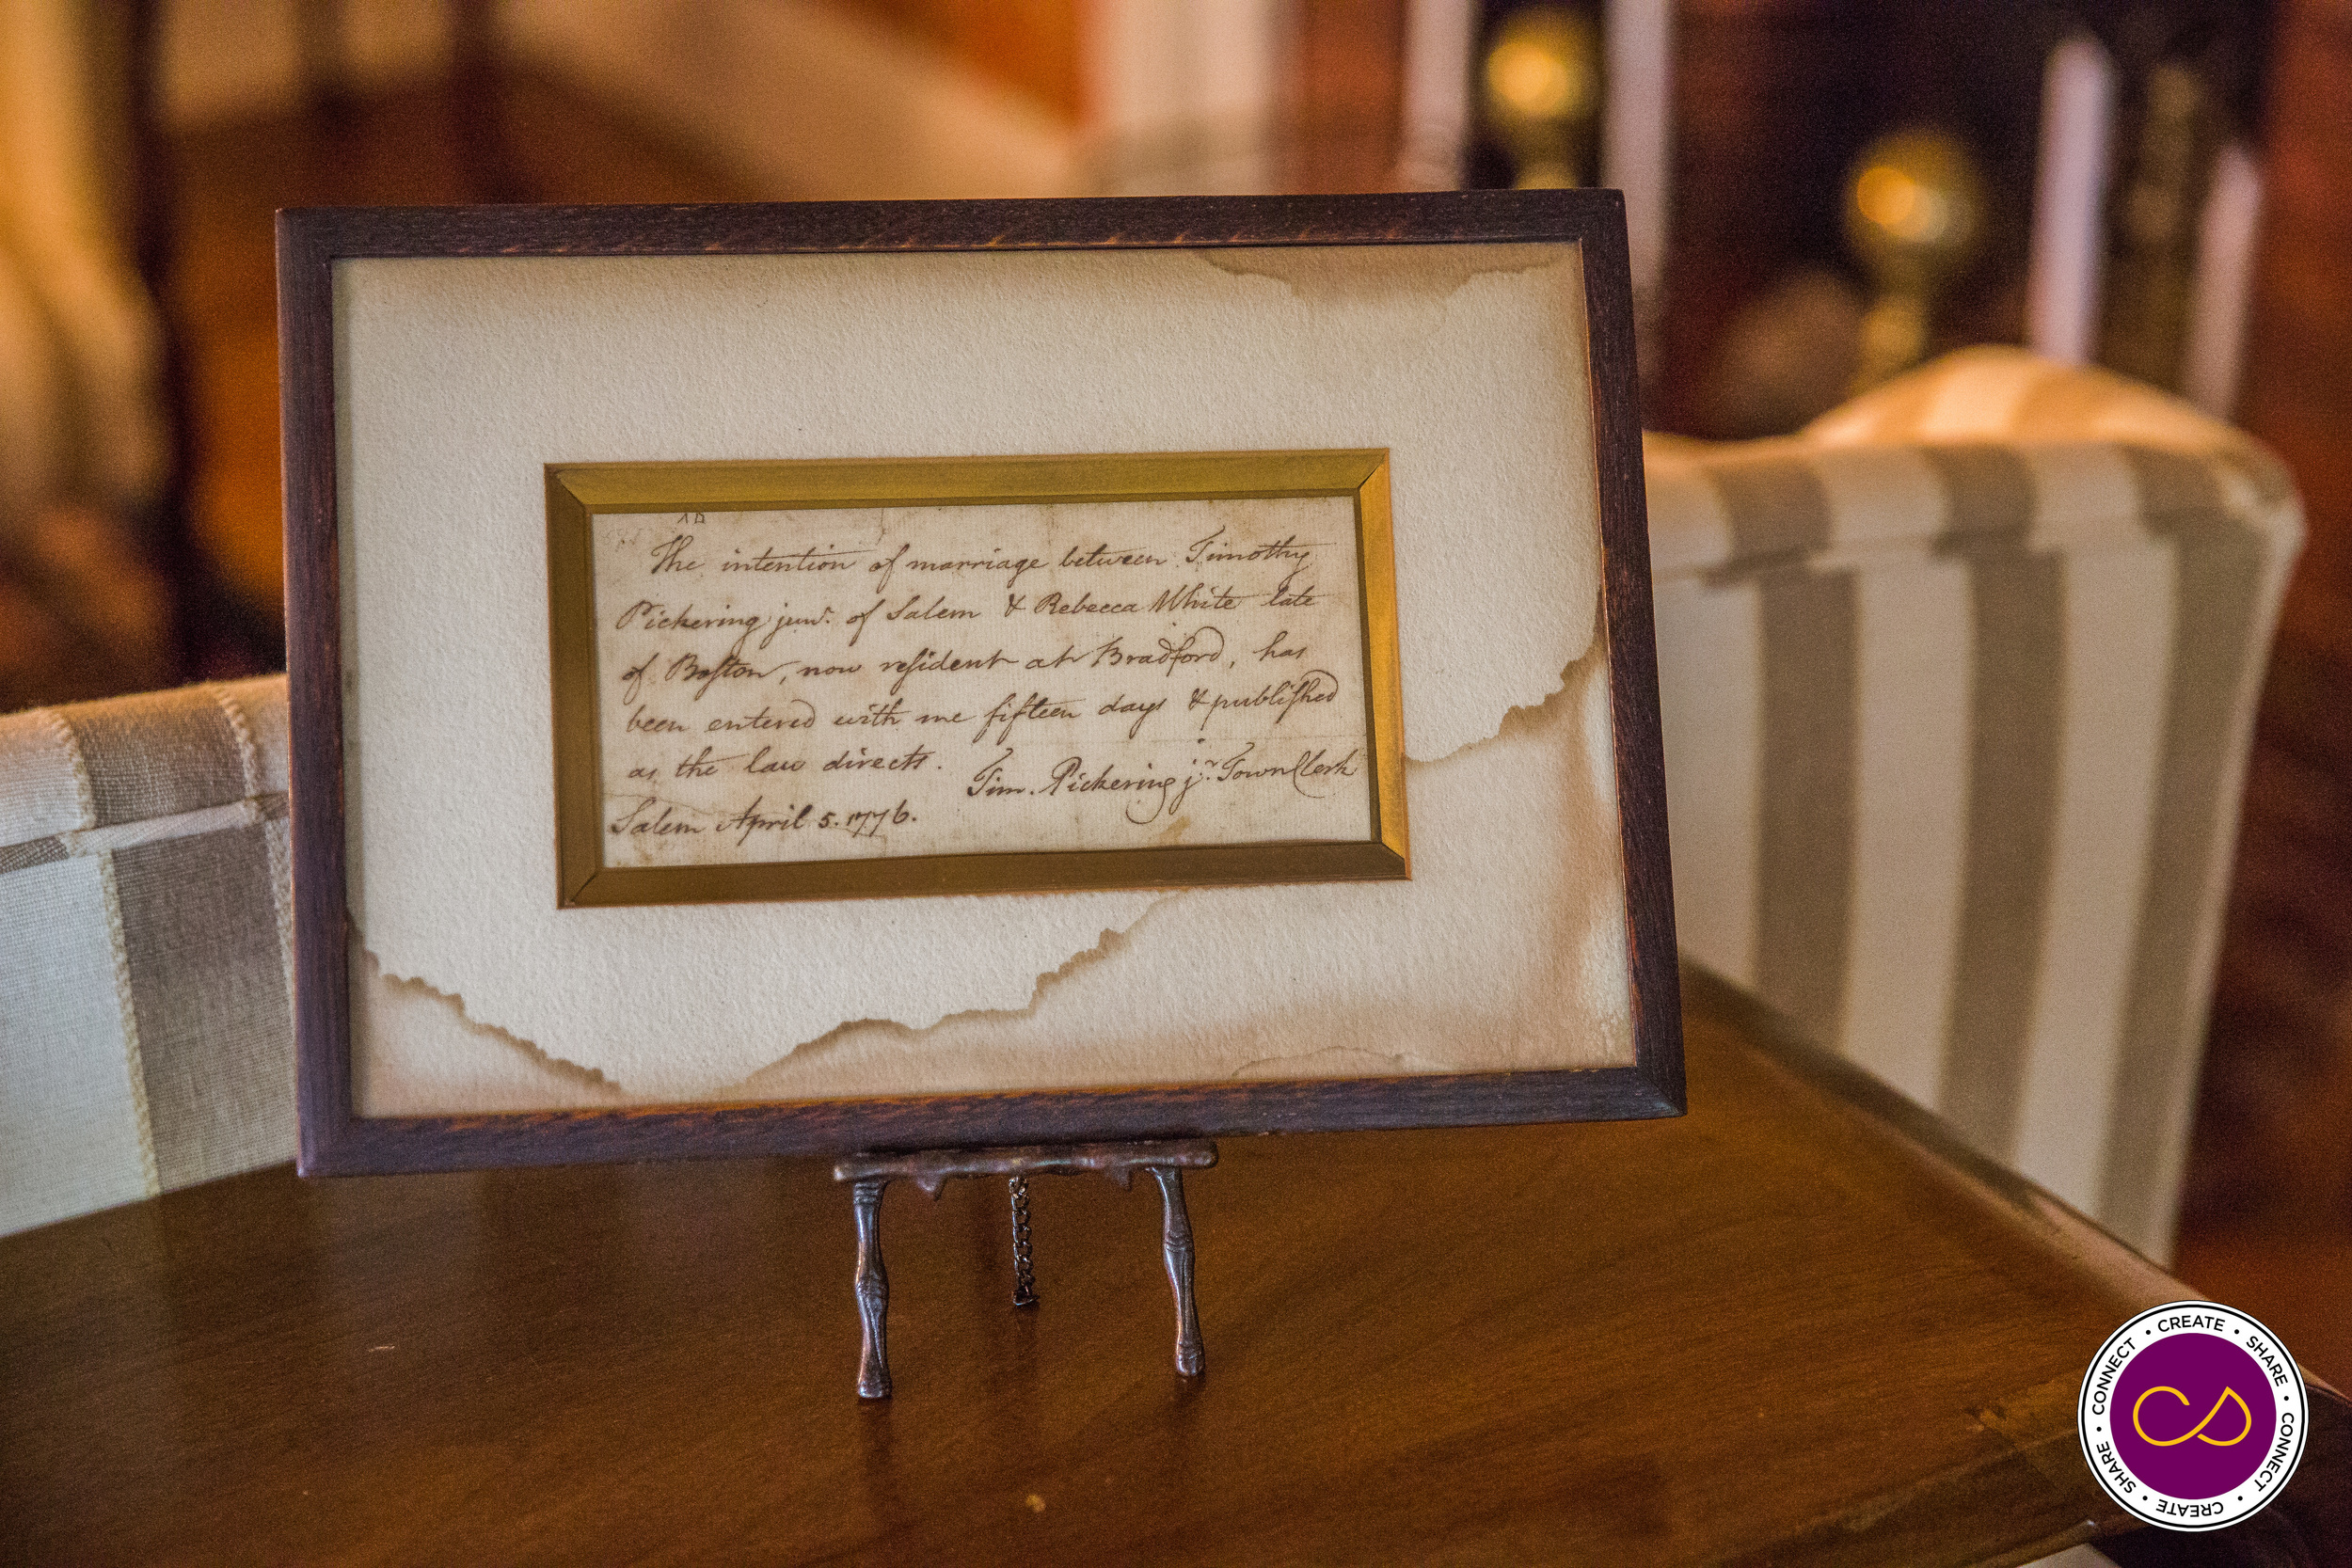 The intention of marriage between Timothy
Pickering junr. of Salem & Rebecca White late
of Boſton, now reſident at Bradford, has
been entered with me fifteen days & publiſhed
as the law directs.
Tim. Pickering jr. Town Clerk
Salem April 5. 1776.
CONNECT • CREATE • SHARE • CONNECT • CREATE • SHARE •